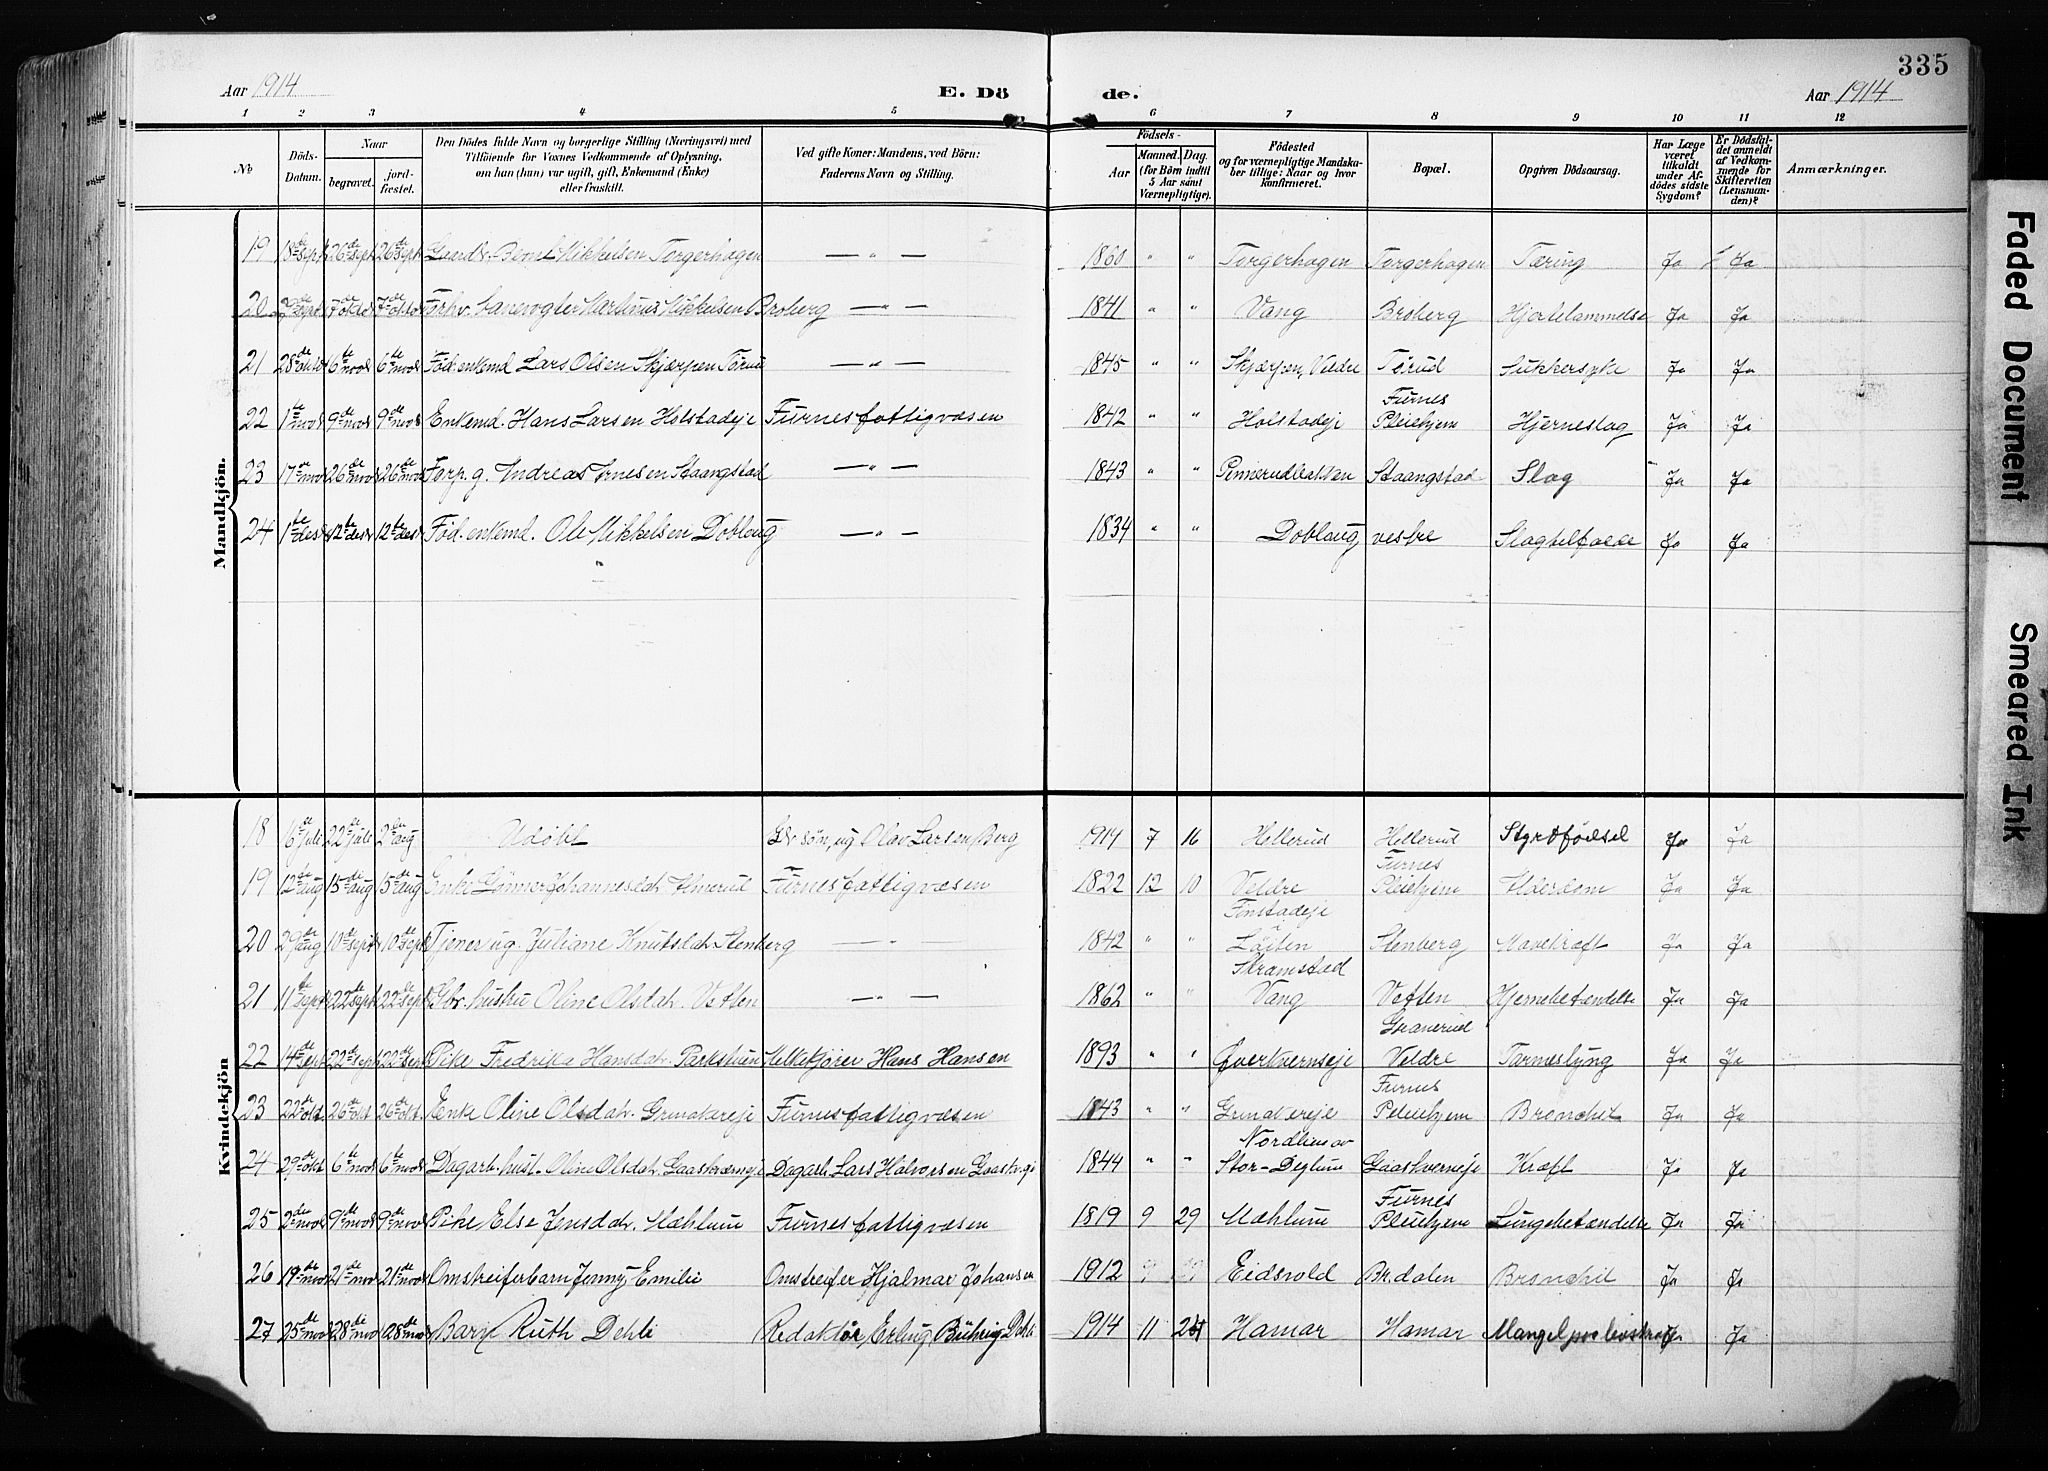 335
Aar 1914 E. Dö de. Aar 1914
1 2 3 4 5 6 7 8 9 10 11 12
No
Döds-Datum.
Naar begravet. jordfæstet.
Den Dödes fulde Navn og borgerlige Stilling (Næringsvei) med Tilföiende for Voxnes Vedkommende af Oplysning, om han (hun) var ugift, gift, Enkemand (Enke) eller fraskilt.
Ved gifte Koner: Mandens, ved Börn: Faderens Navn og Stilling.
Födsels- Aar Maaned. Dag. (for Börn indtil 5 Aar samt Værnepligtige).
Födested og for værnepligtige Mandskaber tillige: Naar og hvor konfirmeret.
Bopæl.
Opgiven Dödsaarsag.
Har Læge været tilkaldt under Afdödes sidste Sygdom?
Er Dödsfaldet anmeldt af Vedkommende for Skifteretten (Lensmanden)?
Anmærkninger.
Mandkjön.
19 18de sept 26de sept 26de sept Gaardbr. Bernt Mikkelsen Torgerhagen — " — 1860 " " Torgerhagen Torgerhagen Tæring Ja Ja
20 sept 7de oktbr 7de oktbr Forhv. banevogter Martinus Mikkelsen Broberg — " — 1841 " " Vang Broberg Hjertelammelse Ja Ja
21 28de oktbr 6te novbr 6te novbr Föd. enkemd Lars Olsen Skjærpen Törud — " — 1845 " " Skjærpen, Veldre Törud Sukkersyke Ja Ja
22 1ste novbr 9de novbr 9de novbr Enkemd. Hans Larsen Holstadeje Furnes fattigvæsen 1842 " " Holstadeje Furnes Pleiehjem Hjerneslag Ja Ja
23 17de novbr 26de novbr 26de novbr Forp. g. Andreas Arnesen Staangstad — " — 1843 " " Pinnerudbakken Staangstad Slag Ja Ja
24 1ste desbr 12te desbr 12te desbr Föd. enkemd. Ole Mikkelsen Doblaug — " — 1834 " " Doblaug vestre Slagtilfælde Ja Ja
Kvindekjön
18 6de juli 22de juli 2den aug Udöbt Gbr sön, ug Olav Larsen Berg 1914 7 16 Hellerud Hellerud Styrtfödsel Ja Ja
19 12te aug 15de aug 15de aug Enke Johannesdatr. Almerud Furnes fattigvæsen 1822 12 10 Veldre Furnes Pleiehjem Alderdom Ja Ja
20 29de aug 10de sept 10de sept Tjener ug. Juliane Knutsdatr. Stenberg — " 1842 " " Finstadeje Löiten Stenberg Mavekræft Ja Ja
21 11te sept 22de sept 22de sept Gbr. hustru Oline Olsdatr. Vetten — " — 1862 " " Skramstad Vang Vetten Hjernebetændelse Ja Ja
22 14de sept 22de sept 22de sept Pike Fredrika Hansdatr. Parkstuen Melkekjörer Hans Hansen 1893 " " Qverkvernseje Granerud Veldre Tarmeslyng Ja Ja
23 22de okt. 26de okt. 26de okt. Enke Oline Olsdatr. Grimakereje Furnes fattigvæsen 1843 " " Grimakereje Furnes Pleiehjem Bronchit Ja Ja
24 29de okt. 6te novbr 6te novbr Dagarb. hust. Oline Olsdatr. Gaaskverneje Dagarb. Lars Halvorsen 1844 " " Nordlien av Stor-Deglum Gaaskverneje Kræft Ja Ja
25 2den novbr 9de novbr 9de novbr Pike Else Jensdatr. Mæhlum Furnes fattigvæsen 1819 9 29 Mæhlum Furnes Pleiehjem Lungebetændelse Ja Ja
26 19de nov. 21de nov. 21de nov. Omstreiferbarn Jenny Emilie Omstreifer Hjalmar Johansen 1912 Eidsvold Brdalen Bronchit Ja Ja
27 25de nov 28de nov 28de nov Barn Ruth Dehli Redaktör Erling Bühring Dehli 1914 11 24 Hamar Hamar Mangel paa livskraft Ja Ja
Faded Document
Smeared Ink